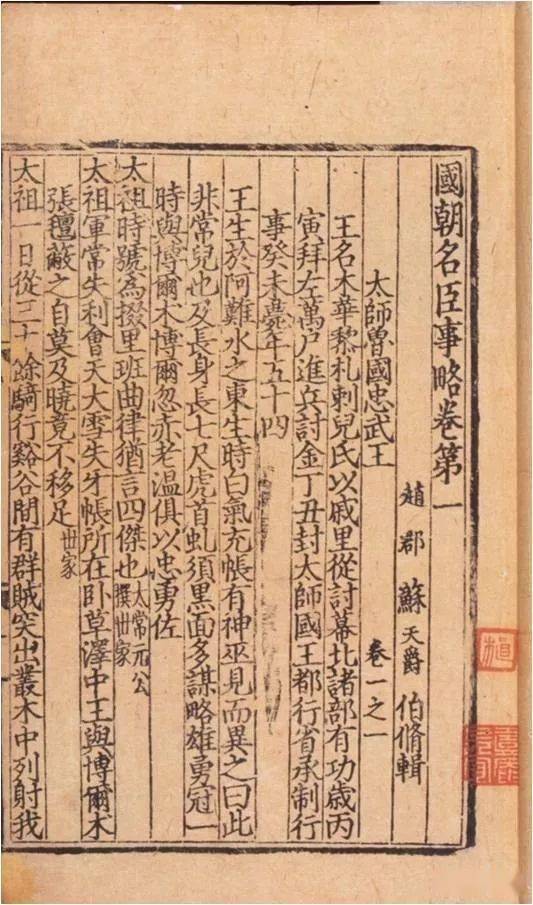 國朝名臣事略卷第一
趙郡蘇天爵伯脩輯
太師魯國忠武王 卷一之一
王名木華黎札剌兒氏以戚里從討幕北諸部有功歲丙
寅拜左萬戶進兵討金丁丑封太師國王都行省承制行
事癸未薨年五十四
王生於阿難水之東生時白氣充帳有神巫見而異之曰此
非常兒也及長身長七尺虎首虬須黑面多謀略雄勇冠一
時與博爾木博爾忽赤老溫俱以忠勇佐
太祖時號為掇里班曲律猶言四傑也太常元公撰世家
太祖軍常失利會天大雪失牙帳所在臥草澤中王與博爾木
張氊蔽之自莫及曉竟不移足世家
太祖一日從三十餘騎行谿谷間有群賊突出叢木中列射我